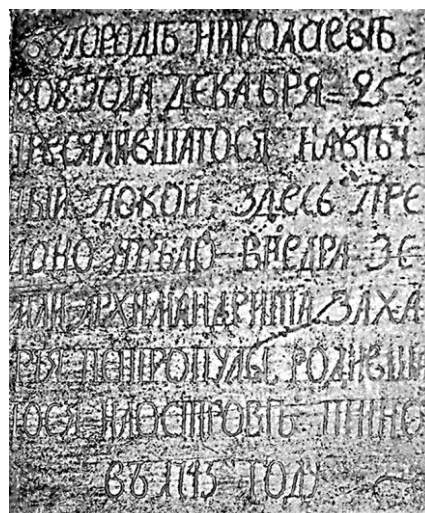 ВЪ ГОРОДѢ НИКОЛАЕВѢ
1808 ГОДА ДЕКАБРЯ = 25 =
ПРЕСЕЛИВШАГОСЯ НАВѢЧ
НЫЙ ПОКОЙ, ЗДЕСЬ ПРЕ
ДАНО ТѢЛО ВНЕДРА ЗЕ
МЛИ АРХИМАНДРИТА ЗАХА
РЬЯ ПЕТРОПУЛЫ, РОДИВША
ГОСЯ НАОСТРОВѢ
ВЪ 1743 ГОДУ